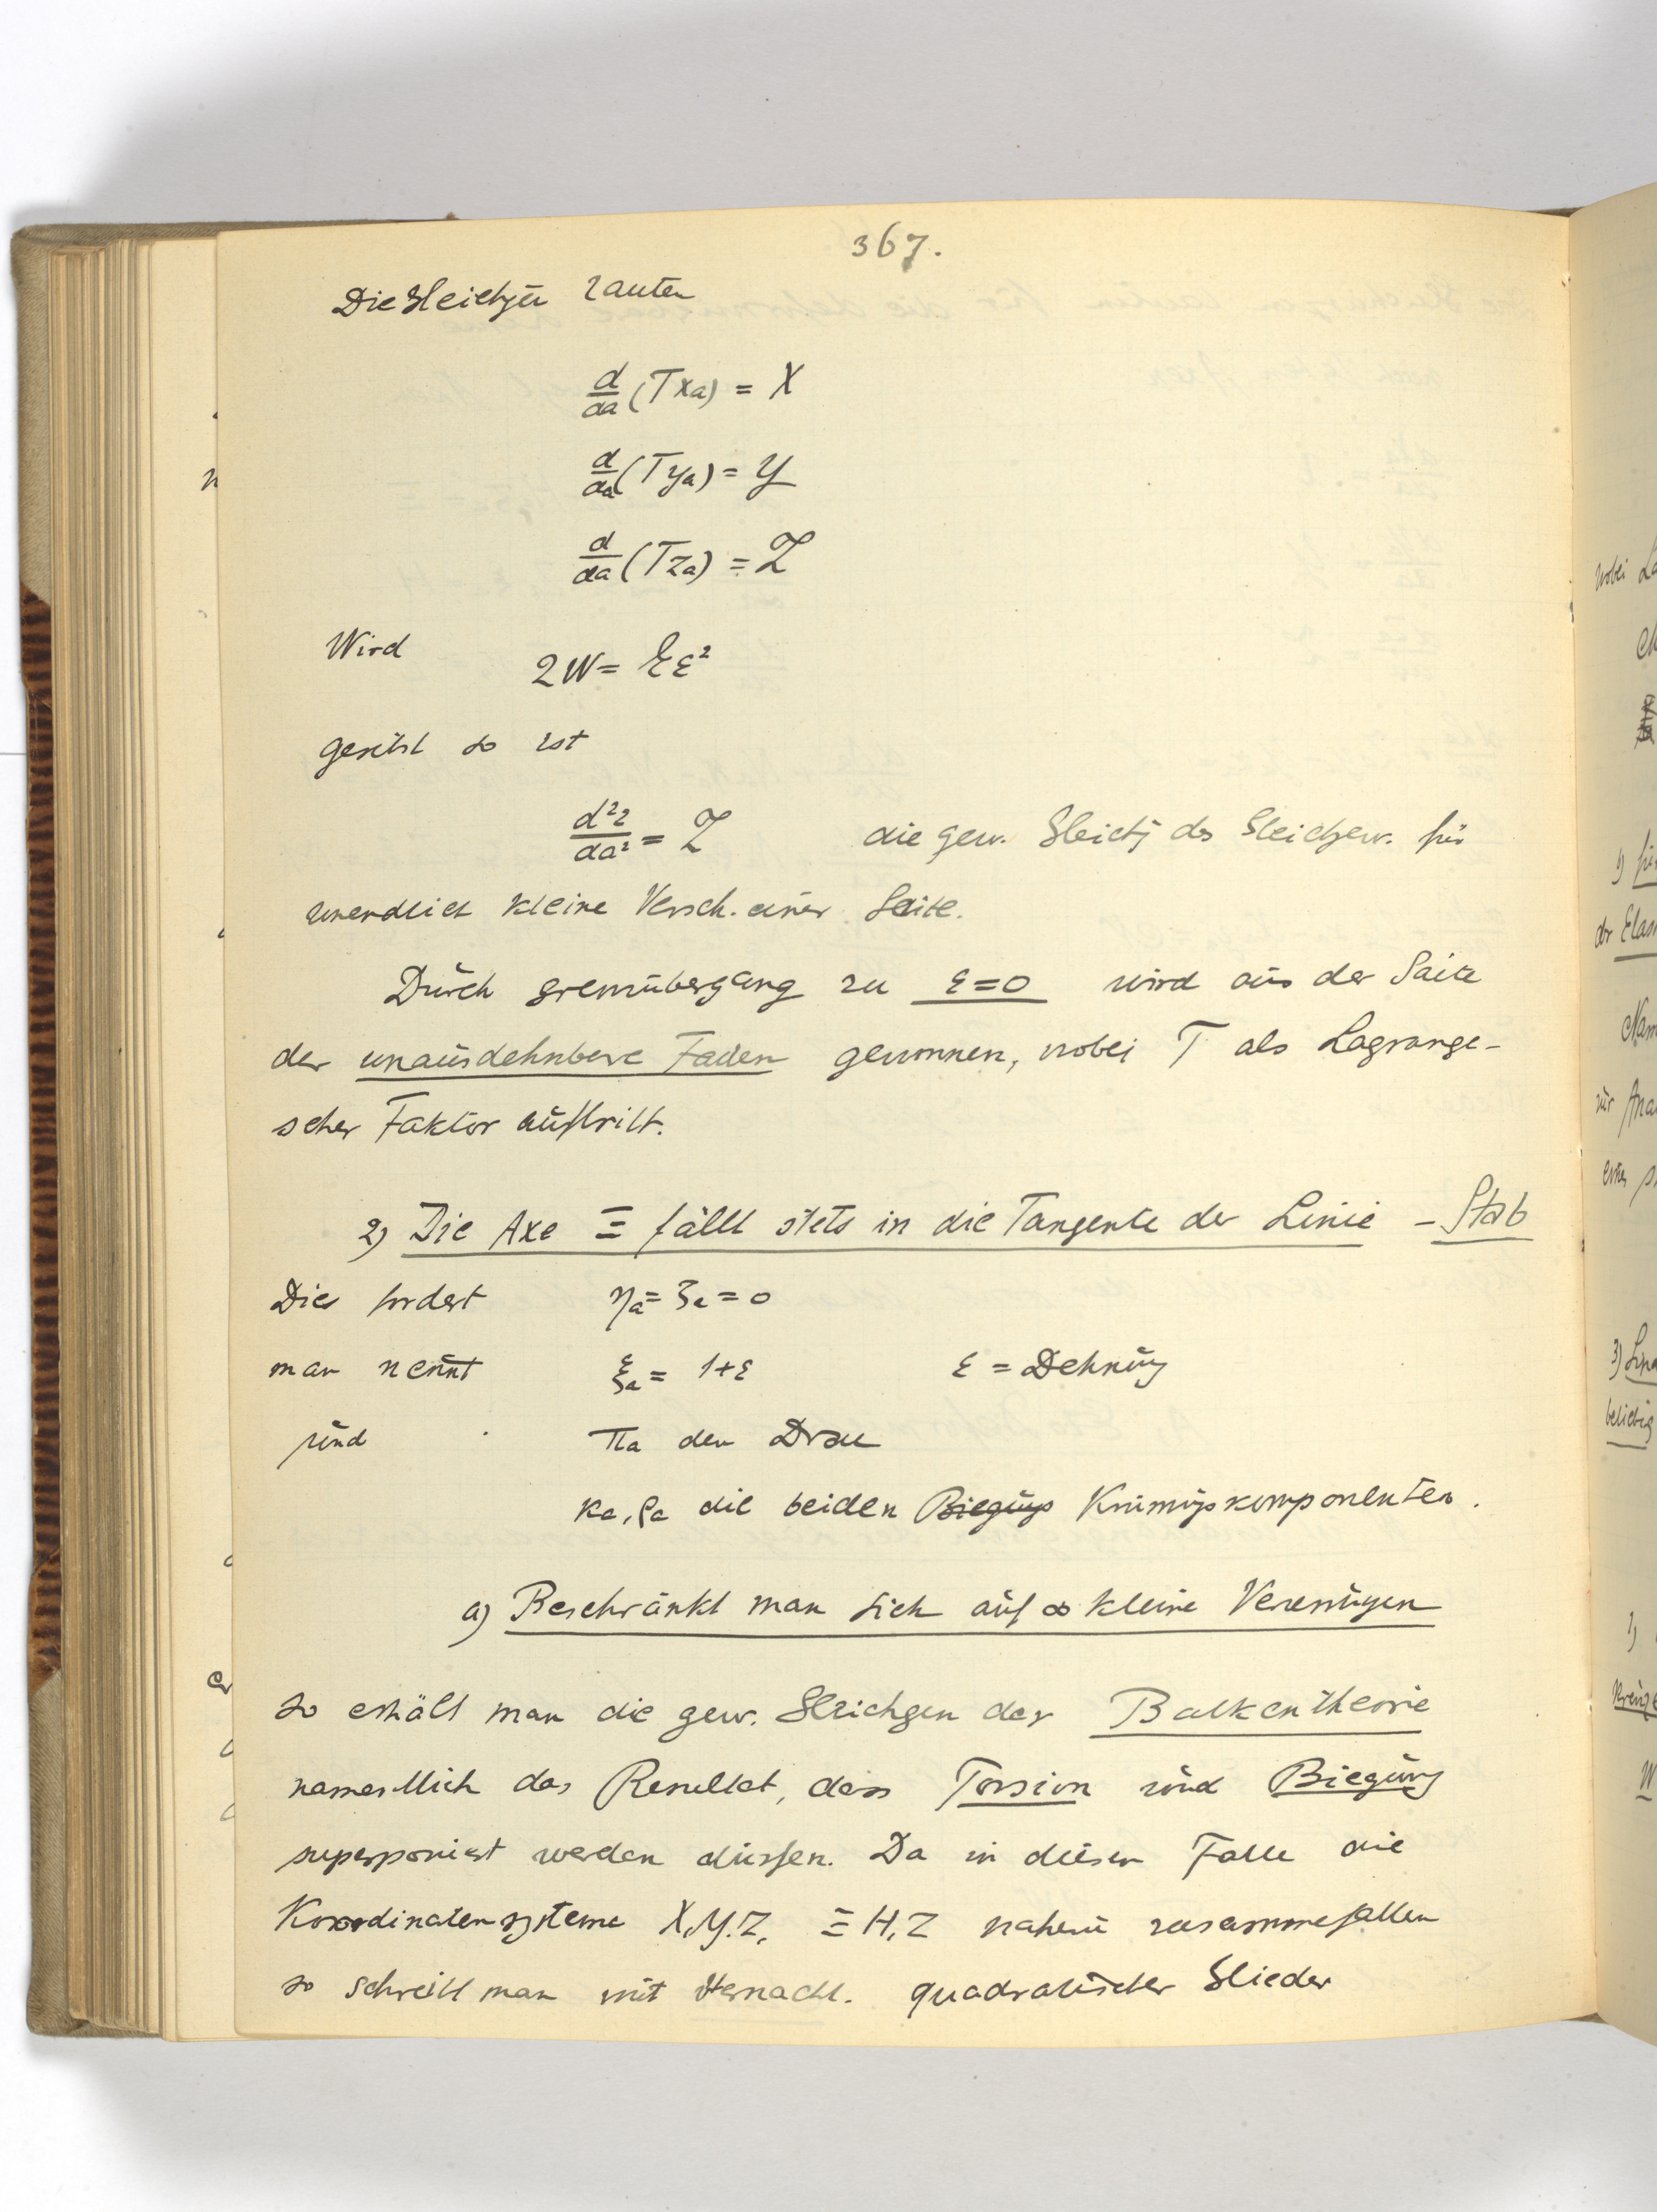 367.
Die Gleichgen lauten
d/da (T xa) = X
d/da (T ya) = Y
d/da (T za) = Z
Wird 2W = Eε²
gesetzt so ist
d²z/da² = Z die gew. Gleichg des Gleichgew. für
unendlich kleine Versch. einer Saite.
Durch Grenzübergang zu ε=0 wird aus der Saite
der unausdehnbare Faden gewonnen, wobei T als Lagrange-
scher Faktor auftritt.
2) Die Axe Ξ fällt stets in die Tangente der Linie – Stab
Dies fordert ηa = ζa = 0
man nennt ξa = 1+ε ε = Dehnung
und πa den
κa, ρa die beiden Biegungs Krümmgskomponenten.
a) Beschränkt man sich auf ∞ kleine
so erhält man die gew. Gleichgen der Balkentheorie
namentlich das Resultat, dass Torsion und Biegung
superponiert werden dürfen. Da in diesem Falle die
Koordinatensysteme X,Y,Z, Ξ H, Z nahezu zusammefallen
so schreibt man mit Vernachl. quadratischer Glieder
wobei
1)
3)
beliebig
1)